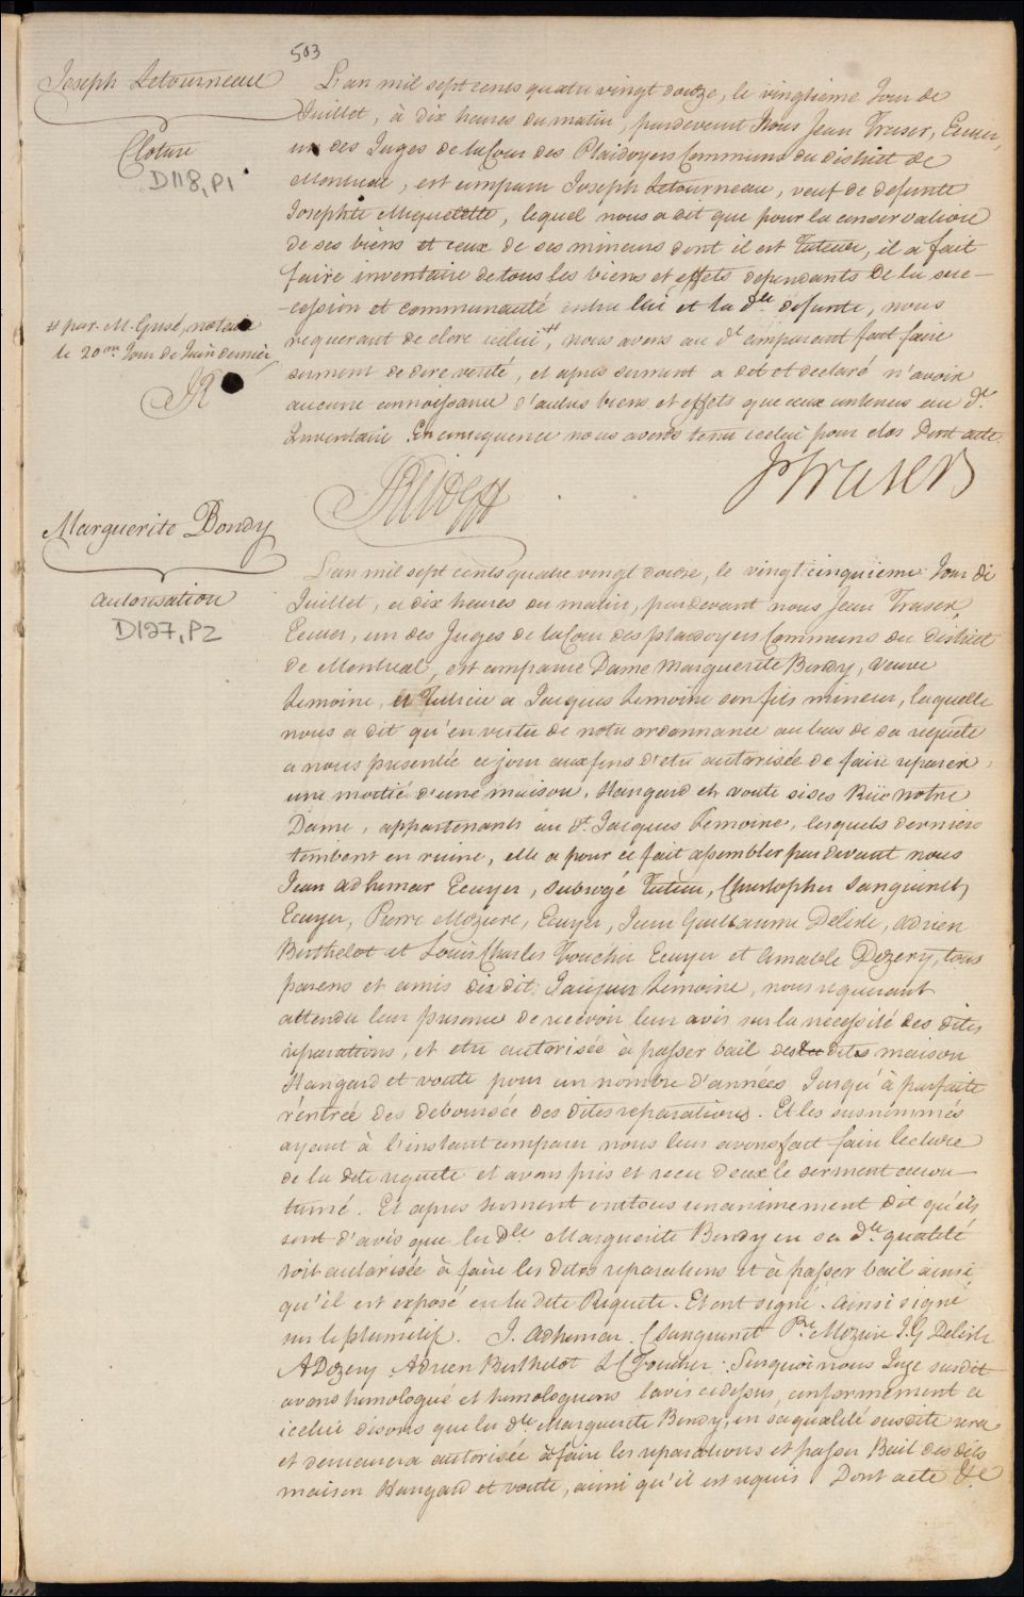 503
Joseph Letourneau
Cloture
D118, P1
L'an mil sept cents quatre vingt douze, le vingtieme Jour de
Juillet, à dix heures du matin, pardevant Nous Jean Fraser, Ecuier,
un des Juges de la Cour des Plaidoyers Communs du district de
Montreal, est comparu Joseph Letourneau, veuf de defunte
Josephte Miquelette, lequel nous a dit que pour la conservation
de ses biens et ceux de ses mineurs dont il est Tuteur, il a fait
faire inventaire de tous les biens et effets dependants de la suc-
-cession et communauté entre lui et la de. defunte, nous
requerant de clore icelui #, nous avons au dt comparant fait faire
serment de dire verité, et après serment a dit et declaré n'avoir
aucune connoissance d'autres biens et effets que ceux contenus au dt.
Inventaire. En consequence nous avons tenu icelui pour clos Dont acte.
# par. M. Gusé, notaire
le 20me. Jour de Juin dernier
JFraser
Marguerite Bondy
autorisation
D127, P2
L'an mil sept cents quatre vingt douze, le vingt cinquieme Jour de
Juillet, à dix heures du matin, pardevant nous Jean Fraser,
Ecuier, un des Juges de la Cour des plaidoyers Communs du District
de Montreal, est comparue Dame Marguerite Bondy, Veuve
Lemoine, et Tutrice a Jacques Lemoine son fils mineur, laquelle
nous a dit qu'en vertu de notre ordonnance au bas de sa requête
a nous presentée ce jour aux fins d'etre autorisée de faire reparer
une moitié d'une maison, Hangard et voute sises Rüe Notre
Dame, appartenants au dt. Jacques Lemoine, lesquels derniers
tombent en ruine, elle a pour ce fait assembler par devant nous
Jean adhemar Ecuyer, subrogé Tuteur, Christopher Sanguinet,
Ecuyer, Pierre Meziere, Ecuyer, Jean Guillaume Delisle, Adrien
Berthelot et Louis Charles Foucher Ecuyer et Amable Dezery, tous
parens et amis du dit Jacques Lemoine, nous requerant
attendu leur presence de recevoir leur avis sur la necessité des dites
reparations, et etre autorisée à passer bail des dites maison
Hangard et voute pour un nombre d'années Jusqu'à parfaite
rentrée des deboursés des dites reparations. Et les susnommés
ayant à l'instant comparu nous leur avons fait faire lecture
de la dite requete et avons pris et recu d'eux le serment accou-
tumé. Et apres serment ont tous unanimement dit qu'ils
sont d'avis que la dte Marguerite Bondy en sa dte. qualité
soit autorisée à faire les dites reparations et à passer bail ainsi
qu'il est exposé en la dite Requete. Et ont signé. Ainsi signé
sur le plumitif. J. Adhemar. C Sanguinet Pre. Mezire J.G Delisle
ADezery Adrien Berthelot L C Foucher. Surquoi nous Juge susdit
avons homologué et homologuons l'avis cidessus, conformement a
icelui disons que la dte. Marguerite Bondy, en sa qualité susdite sera
et demeurera autorisée à faire les reparations et passer Bail des dits
maison Hangard et voute, ainsi qu'il est requis. Dont acte &c